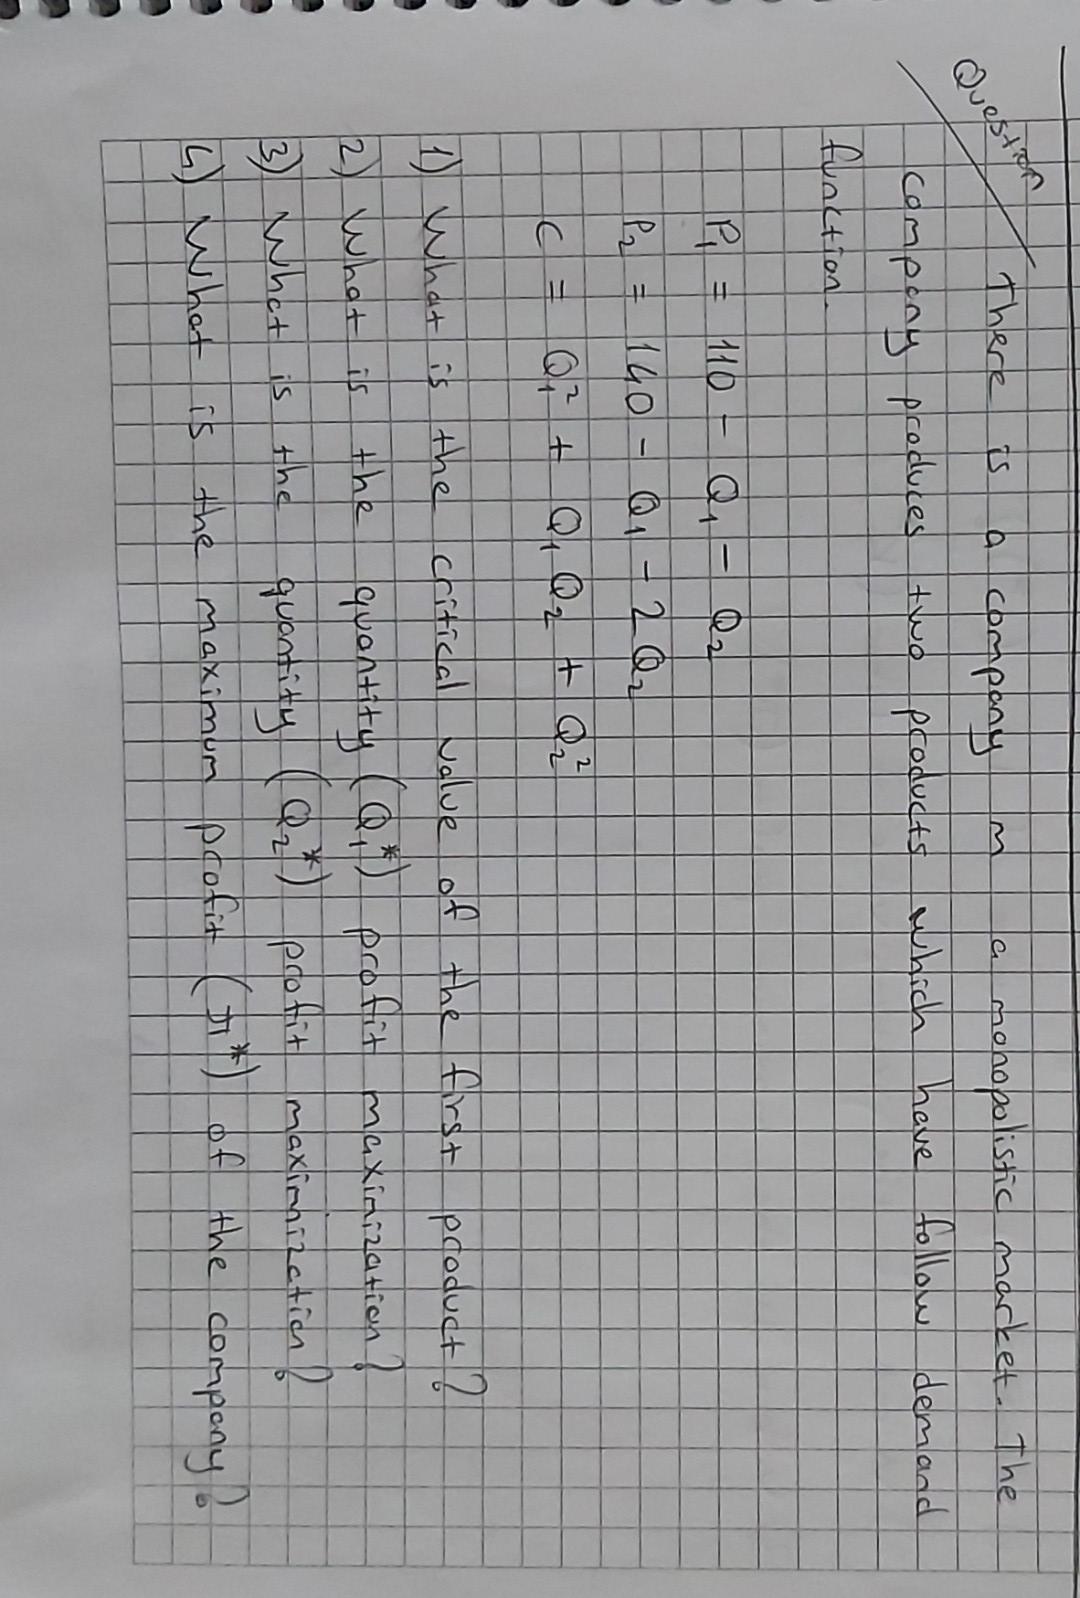 Question There is a company in a monopolistic market. The
company produces two products which have follow demand
function.
P₁ = 110 - Q₁ - Q₂
P₂ = 140 - Q₁ - 2Q₂
C = Q₁² + Q₁Q₂ + Q₂²
1) What is the critical value of the first product?
2) What is the quantity (Q₁*) profit maximization?
3) What is the quantity (Q₂*) profit maximization?
4) What is the maximum profit (π*) of the company?